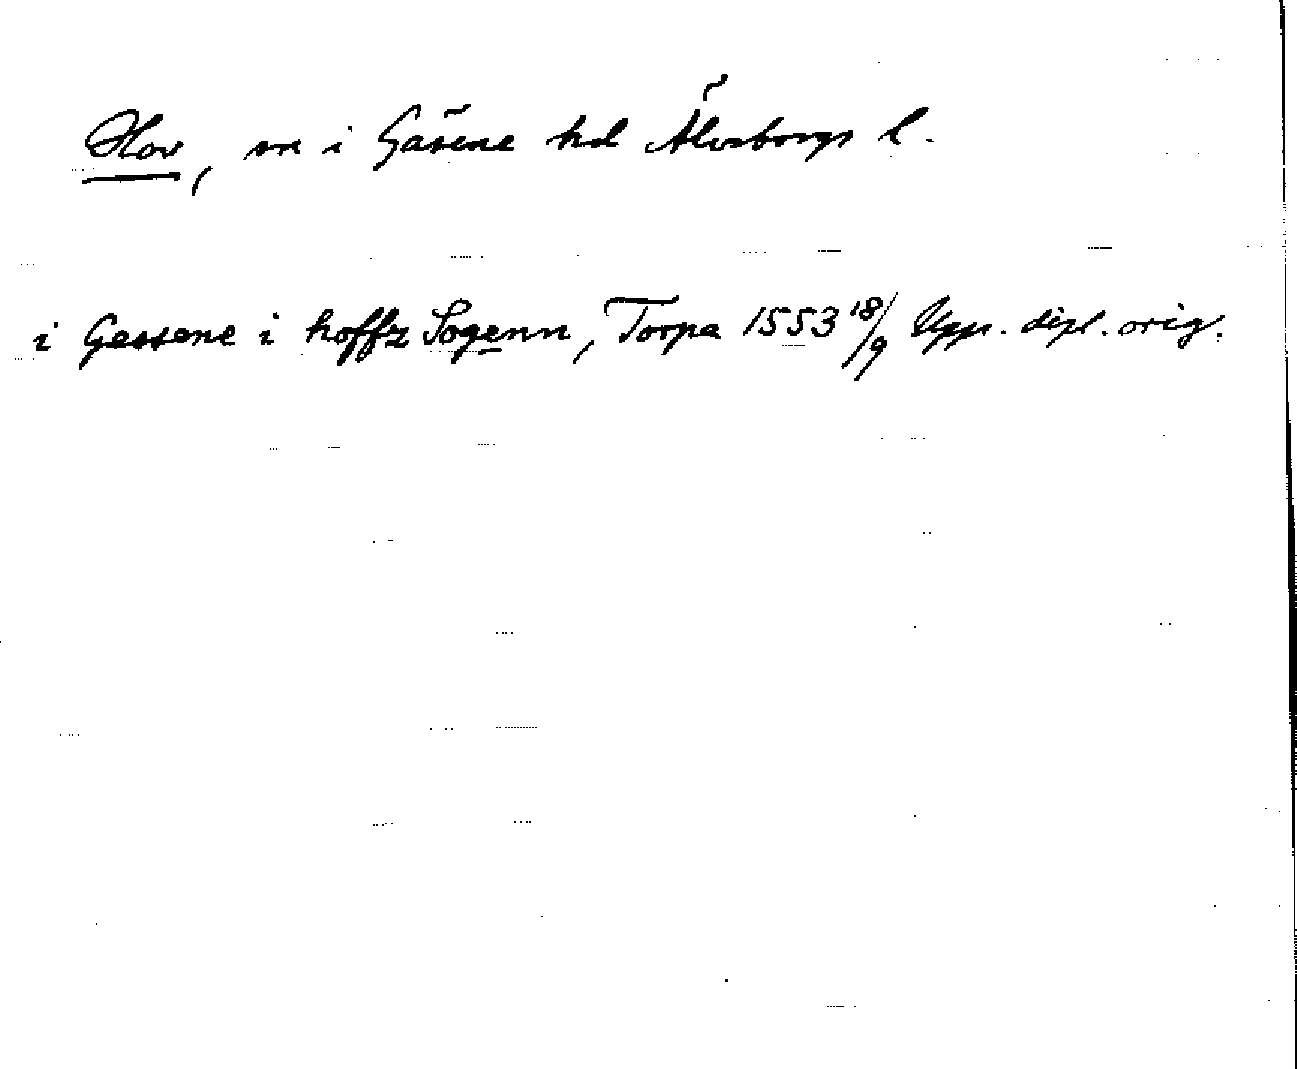 Hov, sn i Gäsene hd Älvsborgs l.
i Gessene i hoffz Sogenn, Torpa 1553 18/9 Upps. dipl. orig.